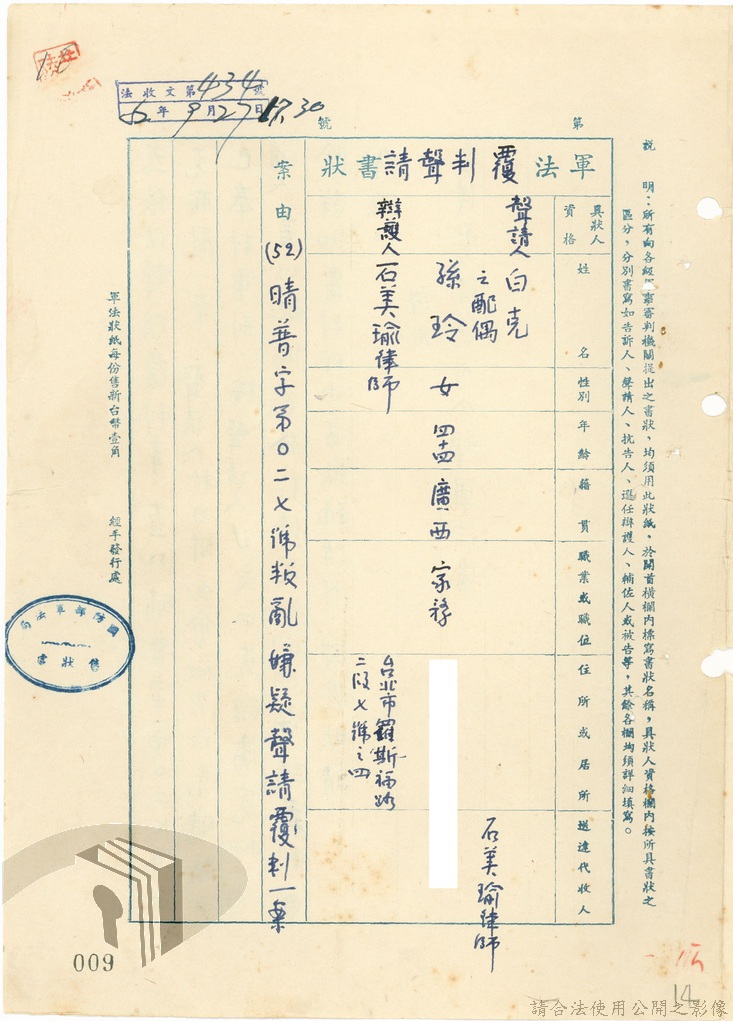 法收文第434號
52年9月27日17.30
第
號
說　明：所有向各級軍事審判機關提出之書狀，均須用此狀紙，於開首橫欄內標寫書狀名稱，具狀人資格欄內按所具書狀之
區分，分別書寫如告訴人、聲請人、抗告人、選任辯護人、輔佐人或被告等，其餘各欄均須詳細填寫。
軍法覆判聲請書狀
具狀人
資格
姓名
性別
年齡
籍貫
職業或職位
住所或居所
送達代收人
聲請人白克
之配偶
孫玲　女　四十四　廣西　家務
石美瑜律師
辯護人石美瑜律師
台北市羅斯福路
二段七號之四
案由
(52)晴普字第0二七號叛亂嫌疑聲請覆判一案
軍法狀紙每份售新台幣壹角
經手發行處
國防部軍法局
售狀處
009
14
請合法使用公開之影像